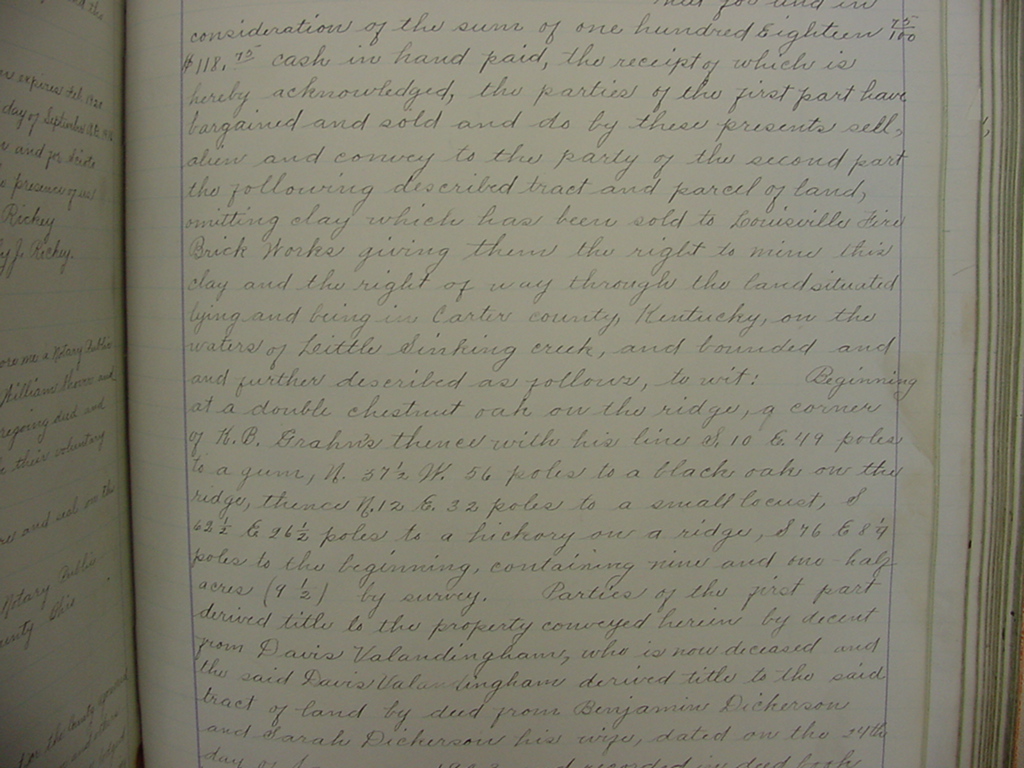 that for and in
consideration of the sum of one hundred Eighteen 75/100
$118.75 cash in hand paid, the receipt of which is
hereby acknowledged, the parties of the first part have
bargained and sold and do by these presents sell,
alien and convey to the party of the second part
the following described tract and parcel of land,
omitting clay which has been sold to Louisville Fire
Brick Works giving them the right to mine this
clay and the right of way through the land situated
lying and being in Carter county, Kentucky, on the
waters of Little Sinking creek, and bounded and
and further described as follows, to wit: Beginning
at a double chestnut oak on the ridge, a corner
of K.B. Grahn's thence with his line S. 10 E. 49 poles
to a gum, N. 37½ W. 56 poles to a black oak on the
ridge, thence N. 12 E. 32 poles to a small locust, S
62½ E 26½ poles to a hickory on a ridge, S 76 E
poles to the beginning, containing nine and one-half
acres (9½) by survey. Parties of the first part
derived title to the property conveyed herein by decent
from Davis Valandingham, who is now deceased and
the said Davis Valandingham derived title to the said
tract of land by deed from Benjamin Dickerson
and Sarah Dickerson his wife, dated on the 24th
day of recorded in deed book
expires Feb. 1920
day of September
presence of us
Rickey
J. Rickey.
me a Notary Public
William
foregoing deed and
their voluntary
and seal on the
Notary Public
Ohio
for the county